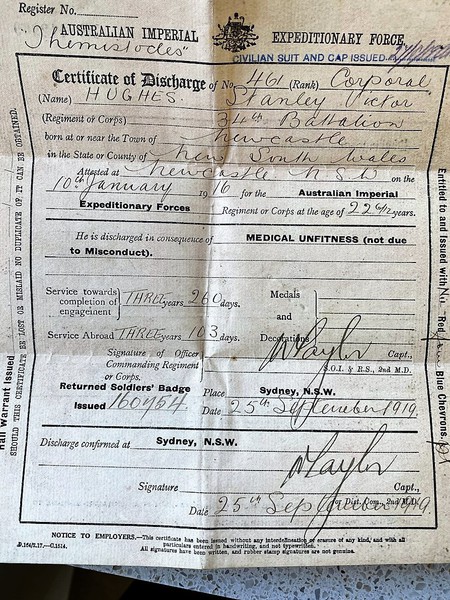 Register No.
AUSTRALIAN IMPERIAL EXPEDITIONARY FORCE
"Themistocles"
CIVILIAN SUIT AND CAP ISSUED
Certificate of Discharge of No. 461 (Rank) Corporal
(Name) HUGHES. Stanley Victor
(Regiment or Corps) 34th Battalion
born at or near the Town of Newcastle
in the State or County of New South Wales
Attested at Newcastle N.S.W on the
10th January 1916 for the Australian Imperial
Expeditionary Forces Regiment or Corps at the age of 22 6/12 years.
He is discharged in consequence of MEDICAL UNFITNESS (not due
to Misconduct).
Service towards completion of engagement THREE years 260 days.
Service Abroad THREE years 103 days.
Medals and Decorations
Signature of Officer Commanding Regiment or Corps.
Taylor Capt.,
S.O.I. & R.S., 2nd M.D.
Returned Soldiers' Badge
Issued 160454
Place Sydney, N.S.W.
Date 25th September 1919.
Discharge confirmed at Sydney, N.S.W.
Signature Taylor Capt.,
for Dist. Com., 2nd M.D.
Date 25th September 1919.
NOTICE TO EMPLOYERS.—This certificate has been issued without any interlineation or erasure of any kind, and with all
particulars entered in handwriting, and not typewritten.
All signatures have been written, and rubber stamp signatures are not genuine.
D.164/7.17.—C.1514.
Rail Warrant Issued
SHOULD THIS CERTIFICATE BE LOST OR MISLAID NO DUPLICATE OF IT CAN BE OBTAINED.
Entitled to and Issued with Nil Red Blue Chevrons.